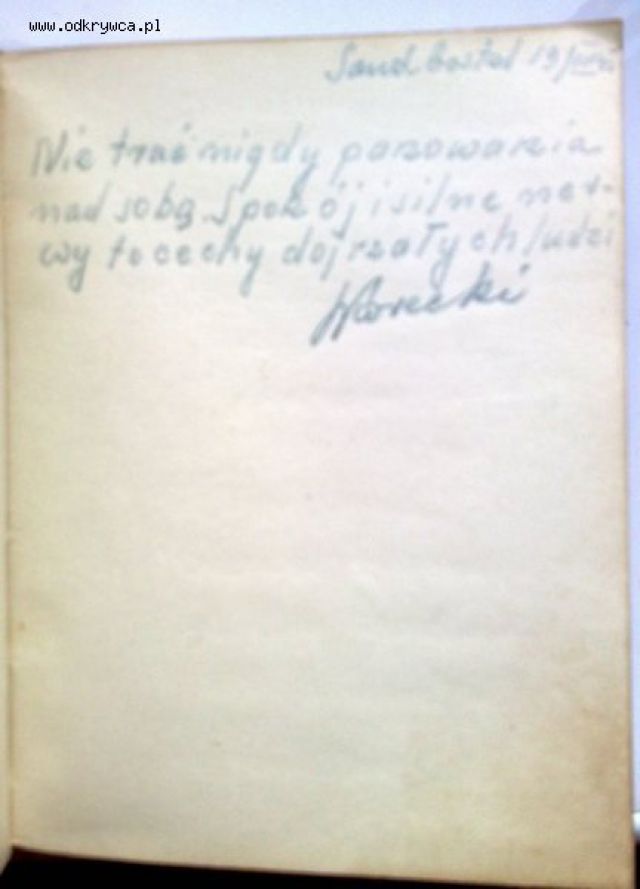 www.odkrywca.pl
Sandbostel 19/
Nie trać nigdy panowania
nad sobą. Spokój i silne ner-
wy to cechy dojrzałych ludzi